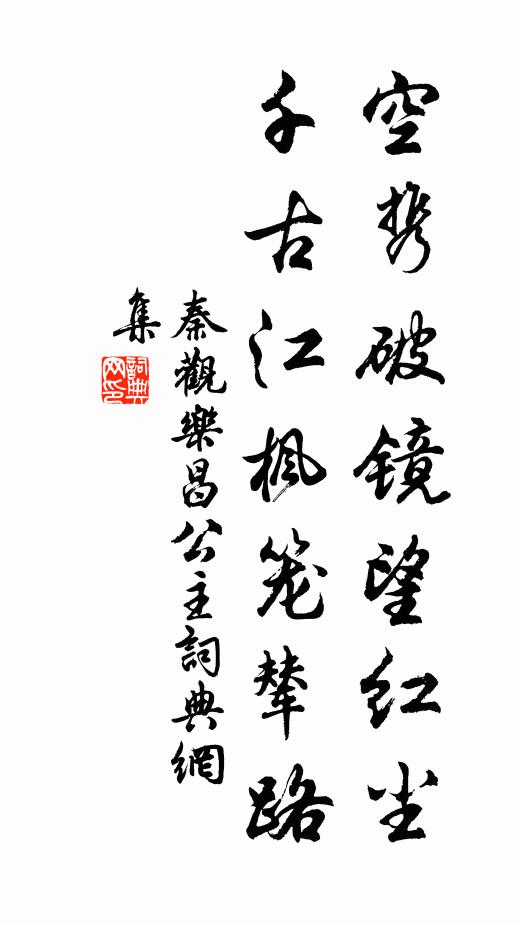 空携破镜望红尘
千古江枫笼辇路
秦觀樂昌公主詞典網
集
詞典
网印